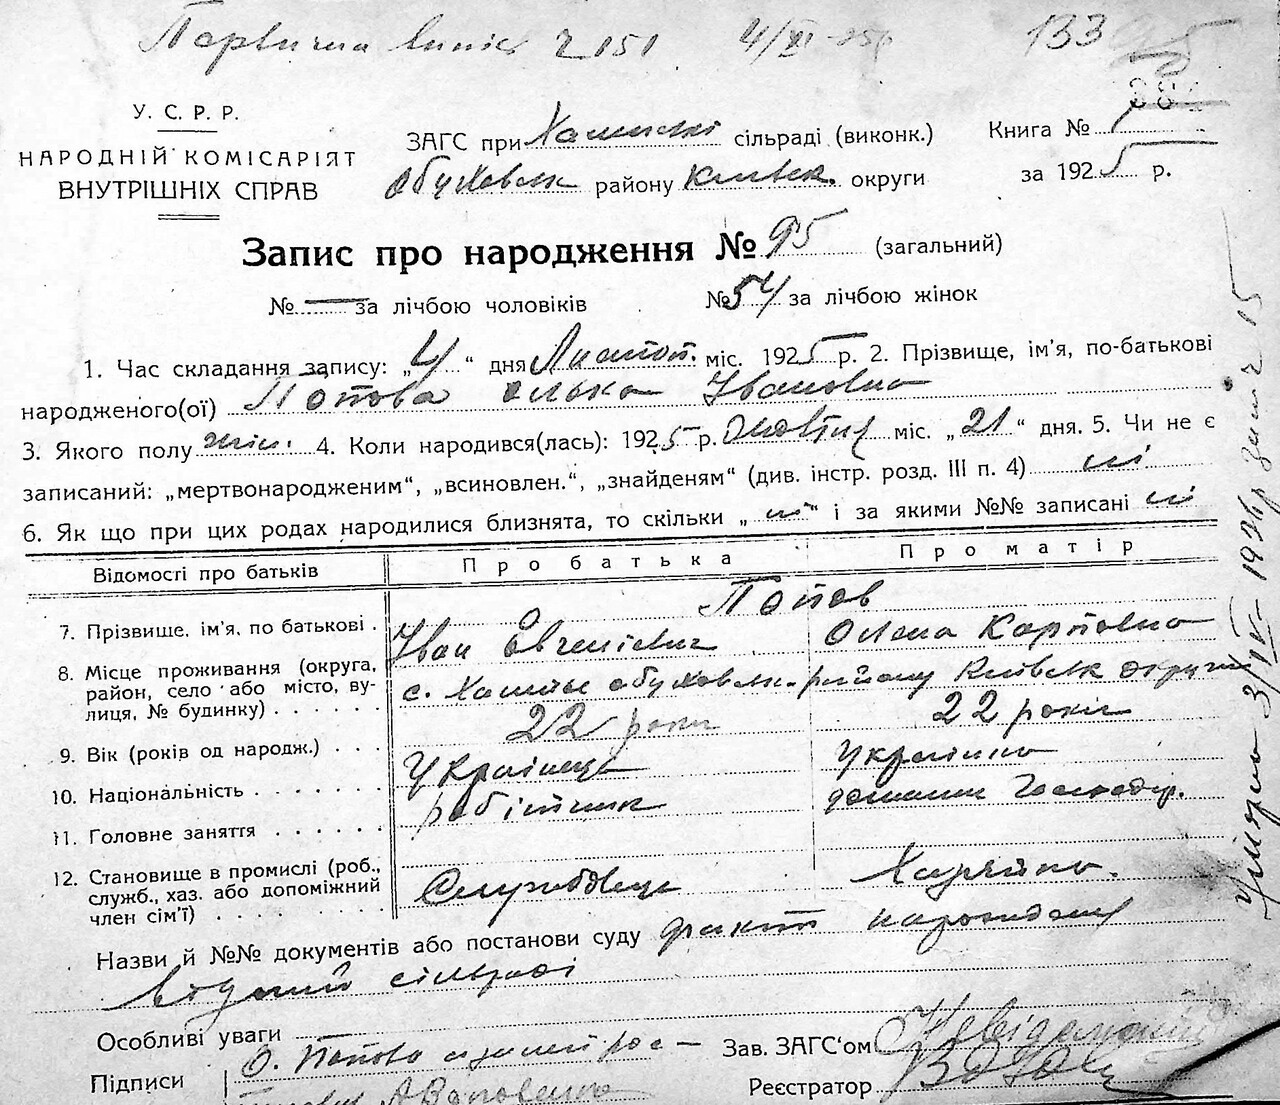 4/XI-25р 133
У. С. Р. Р.
НАРОДНІЙ КОМІСАРІЯТ
ВНУТРІШНІХ СПРАВ
ЗАГС при сільраді (виконк.)
Обуховськ району Київськ. округи
Книга №
за 1925 р.
Запис про народження № 95 (загальний)
№ — за лічбою чоловіків № 54 за лічбою жінок
1. Час складання запису: „4“ дня Листоп. міс. 1925 р. 2. Прізвище, ім’я, по-батькові
народженого(ої) Попова Ольга Івановна
3. Якого полу жін. 4. Коли народився(лась): 1925 р. Жовтня міс. „21“ дня. 5. Чи не є
записаний: „мертвонародженим“, „всиновлен.“, „знайденям“ (див. інстр. розд. III п. 4) ні
6. Як що при цих родах народилися близнята, то скільки „ ні “ і за якими №№ записані ні
Відомості про батьків Про батька Про матір
Попов
7. Прізвище, ім’я, по батькові . Іван Евгенієвич Олена Карповна
8. Місце проживання (округа, район, село або місто, вулиця, № будинку) . . . . . . с. обуховськ. району Київськ округи
9. Вік (років од народж.) . . . 22 роки 22 роки
10. Національність . . . . . . . Українець Українка
11. Головне заняття . . . . . . робітник домашн господар.
12. Становище в промислі (роб., служб., хаз. або допоміжний член сім’ї) . . . . . . . . Службовець Хазяйка.
Назви й №№ документів або постанови суду факт народження
відомий сільраді
Особливі уваги
Підписи О. Попова
Зав. ЗАГС‘ом
Реєстратор
3/IV-1926р